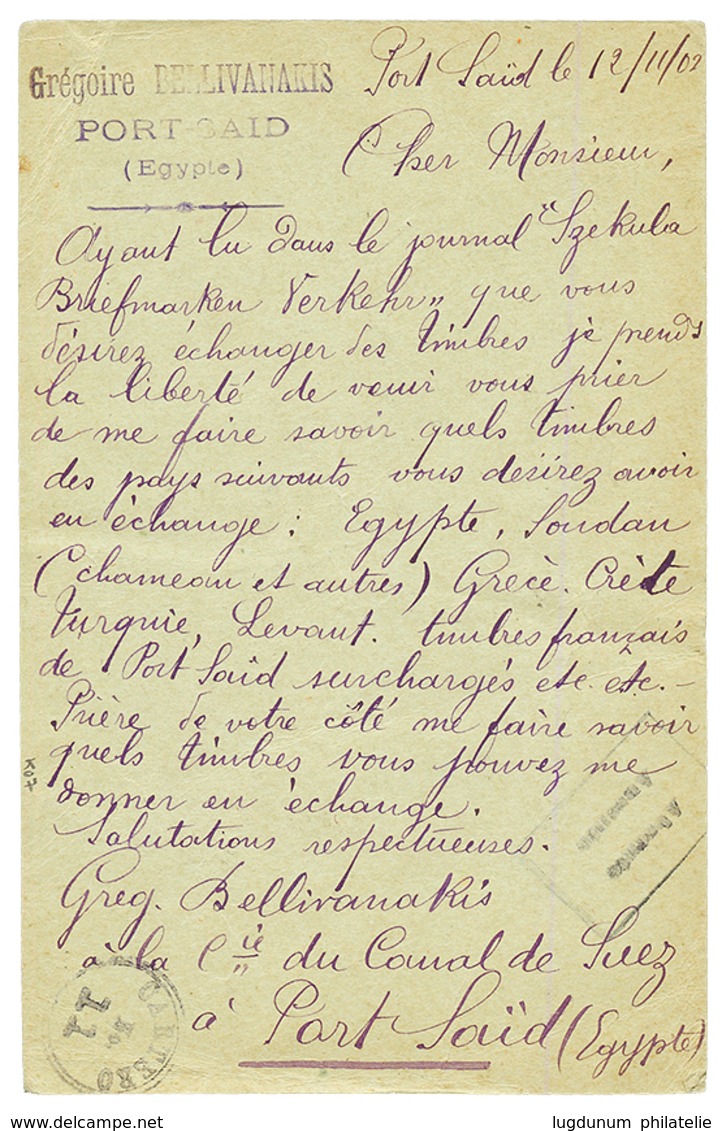 Grégoire BELLIVANAKIS
PORT-SAID
(Egypte)
Port Saïd le 12/11/02
Cher Monsieur,
Ayant lu dans le journal "Szekula
Briefmarken Verkehr" que vous
désirez échanger des timbres je prends
la liberté de venir vous prier
de me faire savoir quels timbres
des pays suivants vous désirez avoir
en échange : Egypte, Soudan
(chameau et autres) Grècè. Crète
Turquie, Levant. timbres français
de Port Saïd surchargés etc. etc. –
Prière de votre côté me faire savoir
quels timbres vous pouvez me
donner en échange.
Salutations respectueuses.
Greg. Bellivanakis
à la Cie du Canal de Suez
à Port Saïd (Egypte)
K07
CARTERO
No
11
lugdunum philatelie